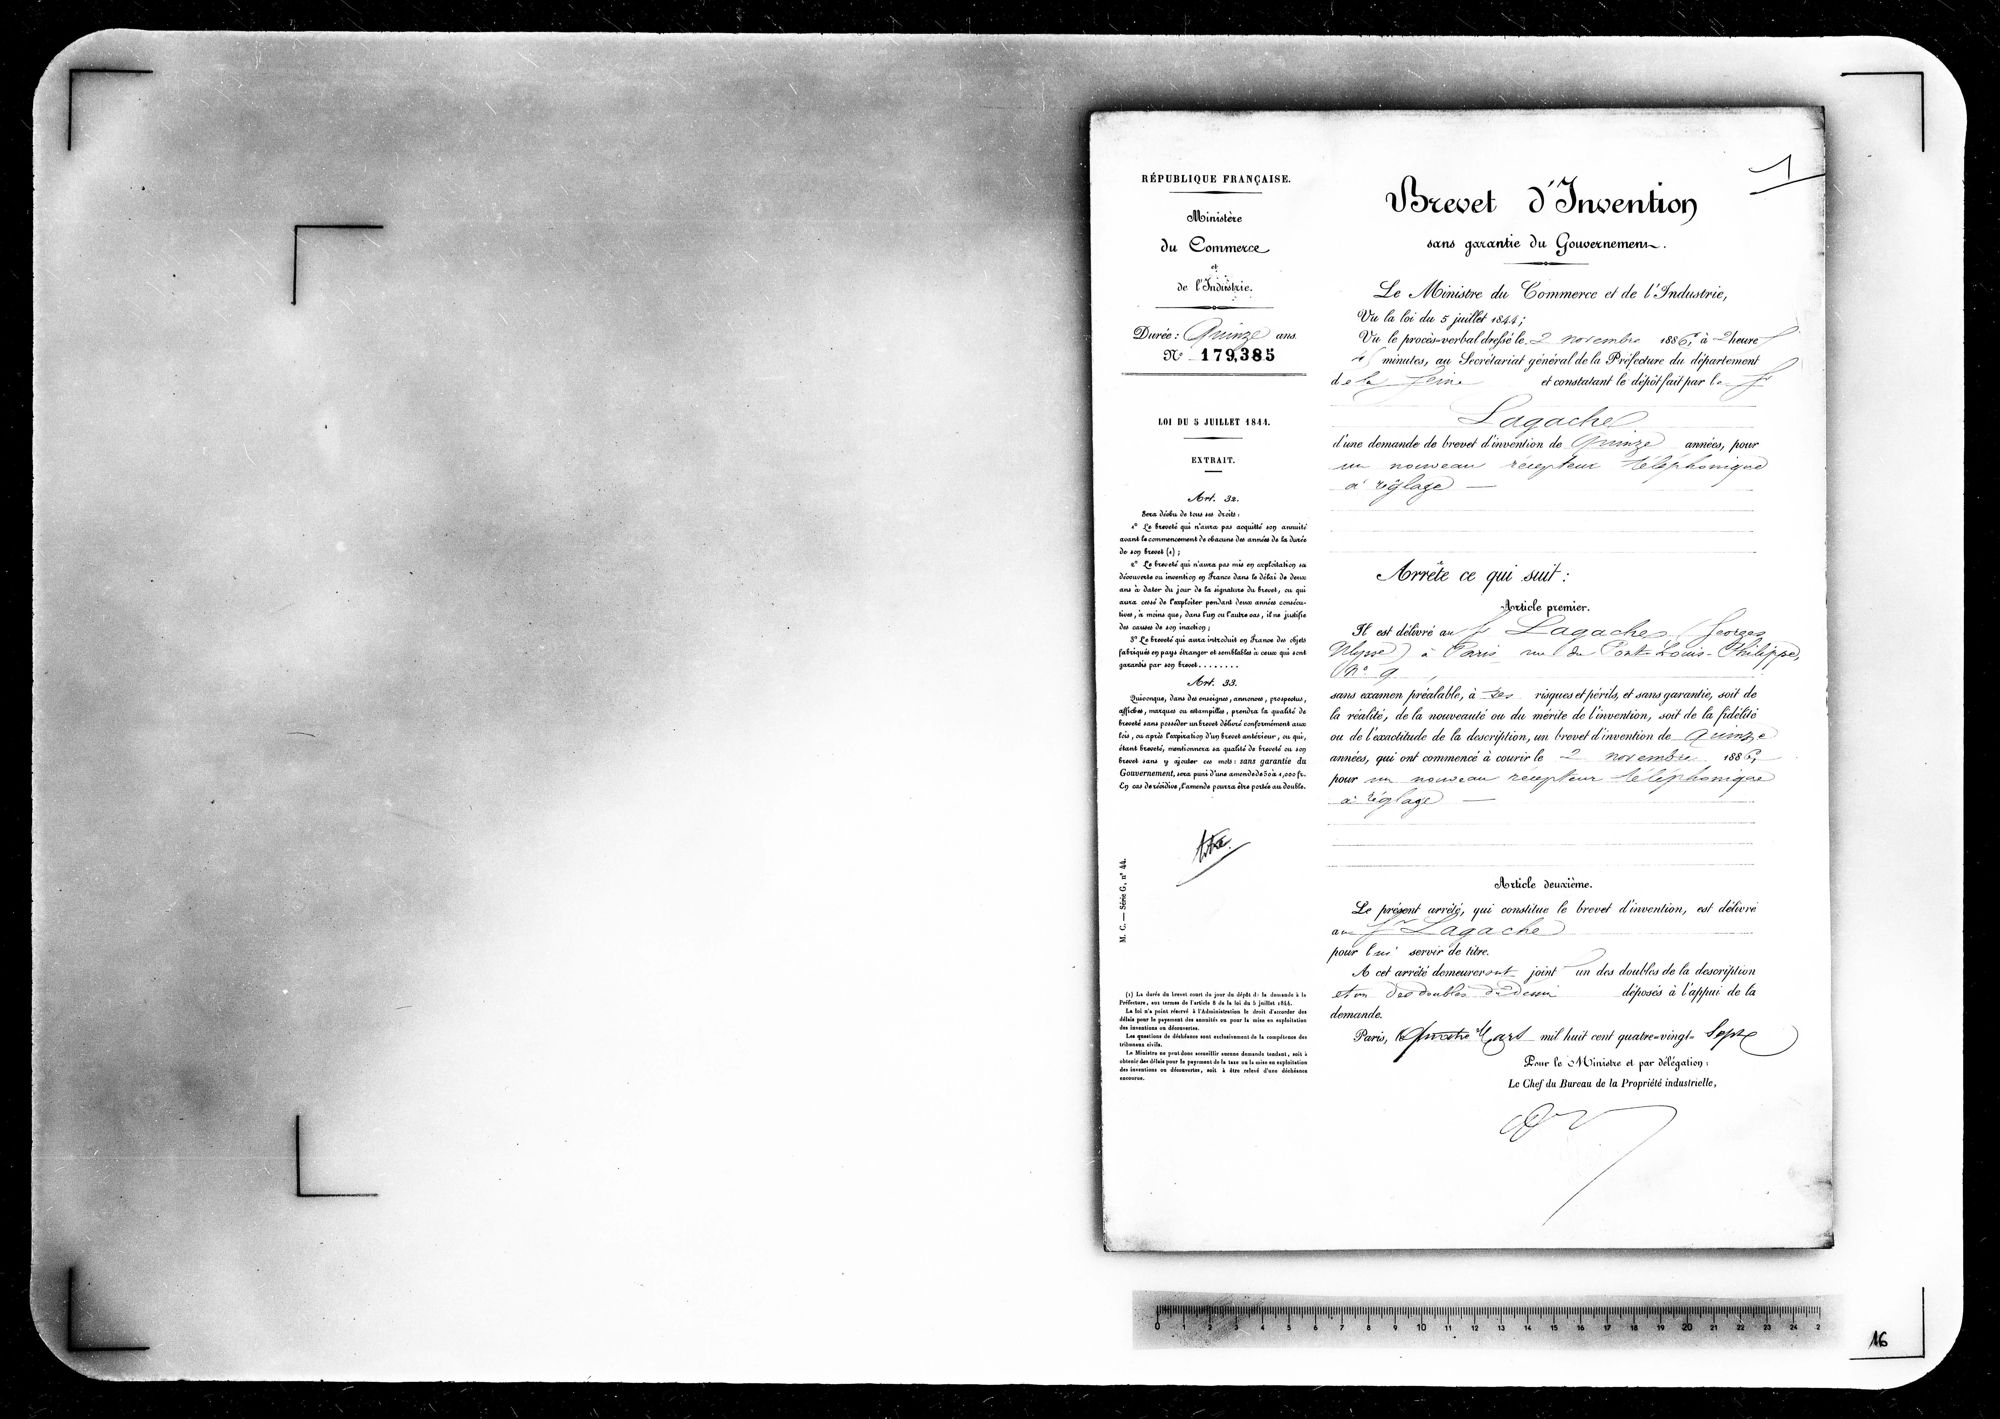 1
RÉPUBLIQUE FRANÇAISE.
Ministère
du Commerce
et
de l'Industrie.
Durée : Quinze ans.
N° 179,385
LOI DU 5 JUILLET 1844.
EXTRAIT.
Art. 32.
Sera déchu de tous ses droits :
1° Le breveté qui n'aura pas acquitté son annuité
avant le commencement de chacune des années de la durée
de son brevet (1) ;
2° Le breveté qui n'aura pas mis en exploitation sa
découverte ou invention en France dans le délai de deux
ans à dater du jour de la signature du brevet, ou qui
aura cessé de l'exploiter pendant deux années consécu-
tives, à moins que, dans l'un ou l'autre cas, il ne justifie
des causes de son inaction ;
3° Le breveté qui aura introduit en France des objets
fabriqués en pays étranger et semblables à ceux qui sont
garantis par son brevet........
Art. 33.
Quiconque, dans des enseignes, annonces, prospectus,
affiches, marques ou estampilles, prendra la qualité de
breveté sans posséder un brevet délivré conformément aux
lois, ou après l'expiration d'un brevet antérieur, ou qui,
étant breveté, mentionnera sa qualité de breveté ou son
brevet sans y ajouter ces mots : sans garantie du
Gouvernement, sera puni d'une amende de 50 à 1,000 fr.
En cas de récidive, l'amende pourra être portée au double.
M. C. — Série G, n° 44.
(1) La durée du brevet court du jour du dépôt de la demande à la
Préfecture, aux termes de l'article 8 de la loi du 5 juillet 1844.
La loi n'a point réservé à l'Administration le droit d'accorder des
délais pour le payement des annuités ou pour la mise en exploitation
des inventions ou découvertes.
Les questions de déchéance sont exclusivement de la compétence des
tribunaux civils.
Le Ministre ne peut donc accueillir aucune demande tendant, soit à
obtenir des délais pour le payement de la taxe ou la mise en exploitation
des inventions ou découvertes, soit à être relevé d'une déchéance
encourue.
Brevet d'Invention
sans garantie du Gouvernement.
Le Ministre du Commerce et de l'Industrie,
Vu la loi du 5 juillet 1844 ;
Vu le procès-verbal dressé le 2 novembre 1886, à 2 heures
minutes, au Secrétariat général de la Préfecture du département
de la Seine et constatant le dépôt fait par le Sr
Lagache
d'une demande de brevet d'invention de Quinze années, pour
un nouveau récepteur téléphonique
à réglage —
Arrête ce qui suit :
Article premier.
Il est délivré au Sr Lagache (Georges
Ulysse) à Paris rue du Pont Louis-Philippe,
N° 9,
sans examen préalable, à ses risques et périls, et sans garantie, soit de
la réalité, de la nouveauté ou du mérite de l'invention, soit de la fidélité
ou de l'exactitude de la description, un brevet d'invention de Quinze
années, qui ont commencé à courir le 2 novembre 1886,
pour un nouveau récepteur téléphonique
à réglage —
Article deuxième.
Le présent arrêté, qui constitue le brevet d'invention, est délivré
au Sr Lagache
pour lui servir de titre.
A cet arrêté demeureront joint un des doubles de la description
et un des doubles du dessin déposés à l'appui de la
demande.
Paris, le Quatre Mars mil huit cent quatre-vingt- Sept
Pour le Ministre et par délégation :
Le Chef du Bureau de la Propriété industrielle,
0 1 2 3 4 5 6 7 8 9 10 11 12 13 14 15 16 17 18 19 20 21 22 23 24 2
16